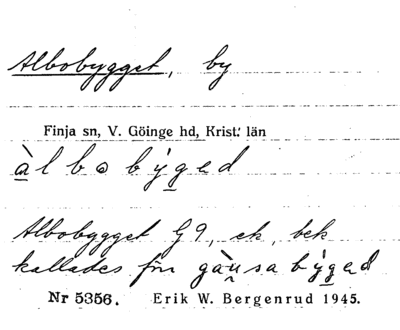 Albobygget, by
Finja sn, V. Göinge hd, Krist. län
àlbobýgad
Albobygget G9, ek, bek
kallades för gàusabýgad
Nr 5356. Erik W. Bergenrud 1945.